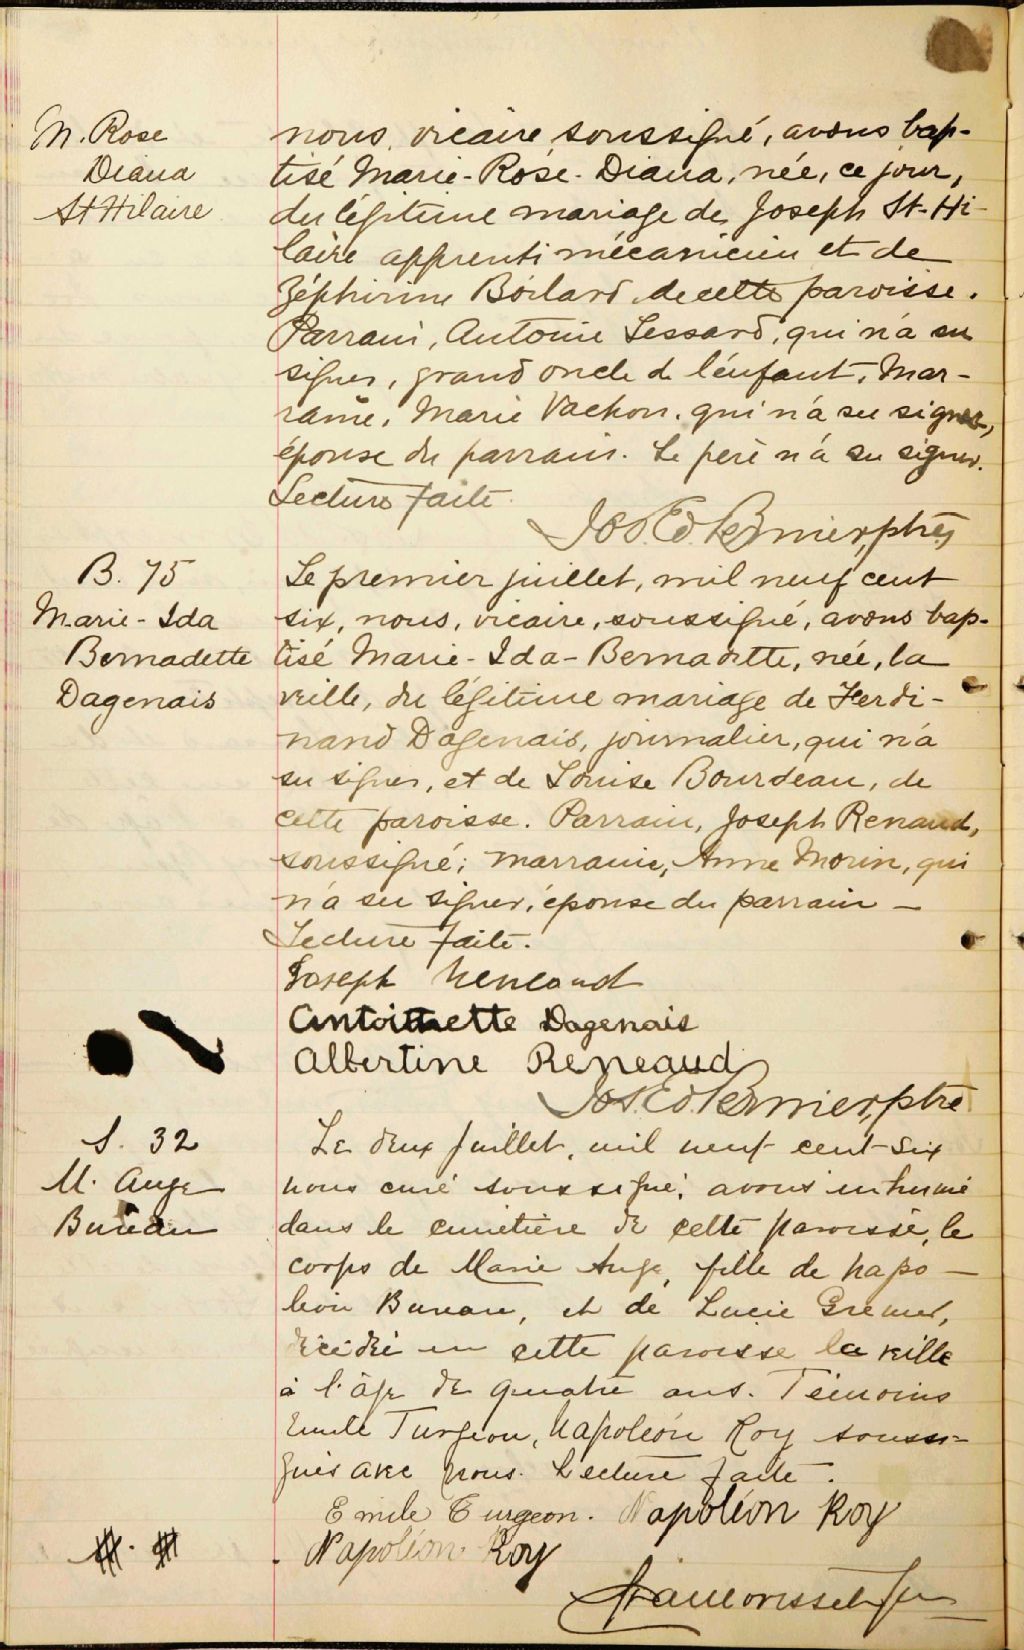 M. Rose
Diana
St Hilaire
nous, vicaire soussigné, avons bap-
tisé Marie-Rose-Diana, née, ce jour,
du légitime mariage de Joseph St-Hi-
laire apprenti mécanicien et de
Zéphirine Boilard de cette paroisse.
Parrain, Antoine Lessard, qui n'a su
signer, grand oncle de l'enfant. Mar-
raine, Marie Vachon, qui n'a su signer,
épouse du parrain. Le père n'a su signer.
Lecture faite.
Jos. Ed. Bernier, ptre,
B. 75
Marie-Ida
Bernadette
Dagenais
Le premier juillet, mil neuf cent
six, nous, vicaire, soussigné, avons bap-
tisé Marie-Ida-Bernadette, née, la
veille, du légitime mariage de Ferdi-
nand Dagenais, journalier, qui n'a
su signer, et de Louise Bourdeau, de
cette paroisse. Parrain, Joseph Renaud,
soussigné; marraine, Anne Morin, qui
n'a su signer, épouse du parrain —
Lecture faite.
Joseph Reneaud
Antoinette Dagenais
Albertine Reneaud
Jos. Ed. Bernier, ptre
S. 32
M. Ange
Bureau
Le deux Juillet, mil neuf cent six
nous curé soussigné, avons inhumé
dans le cimetière de cette paroisse, le
corps de Marie Ange, fille de Napo-
léon Bureau, et de Lucie Grenier,
décédée en cette paroisse la veille
à l'âge de quatre ans. Témoins
Emile Turgeon, Napoléon Roy soussi-
gnés avec nous. Lecture faite.
Emile Turgeon. Napoléon Roy
Napoléon Roy